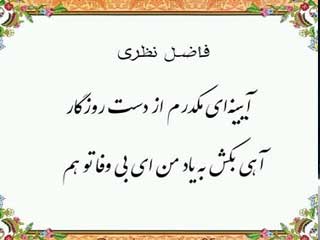 فاضل نظری
آیینه‌ای مکدرم از دست روزگار
آهی بکش به یاد من ای بی وفا تو هم